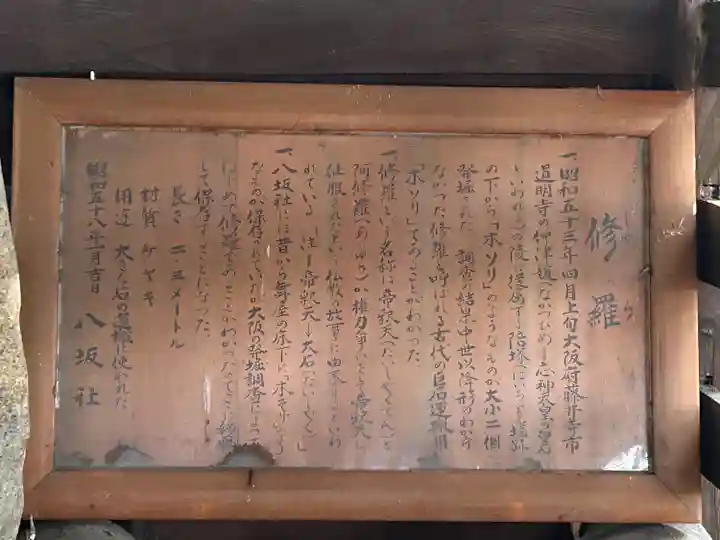 修羅
しゅら
一、昭和五十三年四月上旬大阪府藤井寺市
道明寺の仲津媛(なかつひめ―応神天皇の皇后
といわれ)の陵に
の下から「木ソリ」のようなものが大小二個
発掘された 調査の結果中世以降形のわから
なかった修羅と呼ばれる古代の巨石運搬用
「木ソリ」であることがわかった。
一、修羅という名称は帝釈天(たいしゃくてん)と
阿修羅(あしゅら)が権力争いをし帝釈天に
征服されたという仏教の故事に由来するといわ
れている(注―帝釈天―大石(たいしゃく))
一、八坂社には昔から舞屋の床下に「木ぞり」のよう
なものが保存されていたが大阪の発掘調査によって
はじめて修羅であることがわかったのでここに
して保存することになった。
長さ 二・三メートル
材質 ケヤキ
用途 大きな石の運搬に使われた
昭和五十八年 月吉日 八坂社